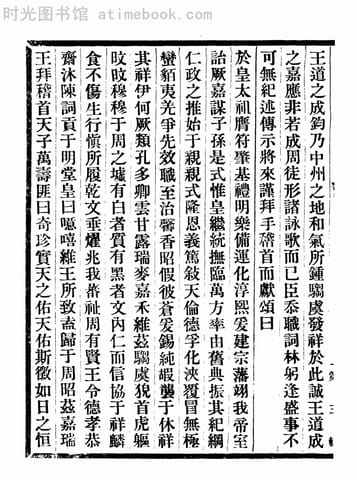 时光图书馆 - atimebook.com
王道之成鈞乃中州之地和氣所鍾騶虞發祥於此誠王道成
之嘉應非若成周徒形諸詠歌而已臣忝職詞林躬逢盛事不
可無紀述傳示將來謹拜手稽首而獻頌曰
於皇太祖膺符肇基禮明樂備運化淳熙爰建宗藩翊我帝室
詒厥嘉謀子孫是式惟皇繼統撫臨萬方率由舊典振其紀綱
仁政之推始于親親式隆恩義篤敍天倫德孚化浹覆冒無極
蠻貊夷羌爭先效職至治馨香昭假彼蒼爰錫純嘏亹于休祥
其祥伊何厥類孔多卿雲甘露瑞麥嘉禾維茲騶虞猊首虎軀
旼旼穆穆于周之墟有白者質有黑者文內仁而信恊于祥麟
食不傷生行愼所履乾文垂燿兆我蕃祉周有賢王令德孝恭
齋沐陳詞貢于明堂皇曰噫嘻維王所致盍歸于周昭茲嘉瑞
王拜稽首天子萬壽匪曰奇珍實天之佑天佑斯徵如日之恒